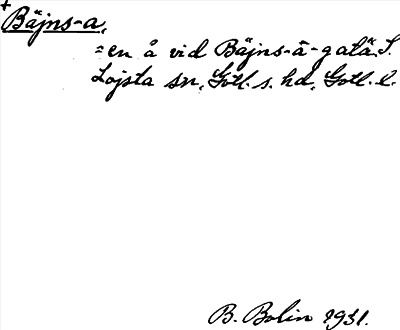 +
Bäjns-a,
= en å vid Bäjns-ā-gatä. S.
Lojsta sn, Gotl. s. hd, Gotl. l.
B. Bolin 1931.